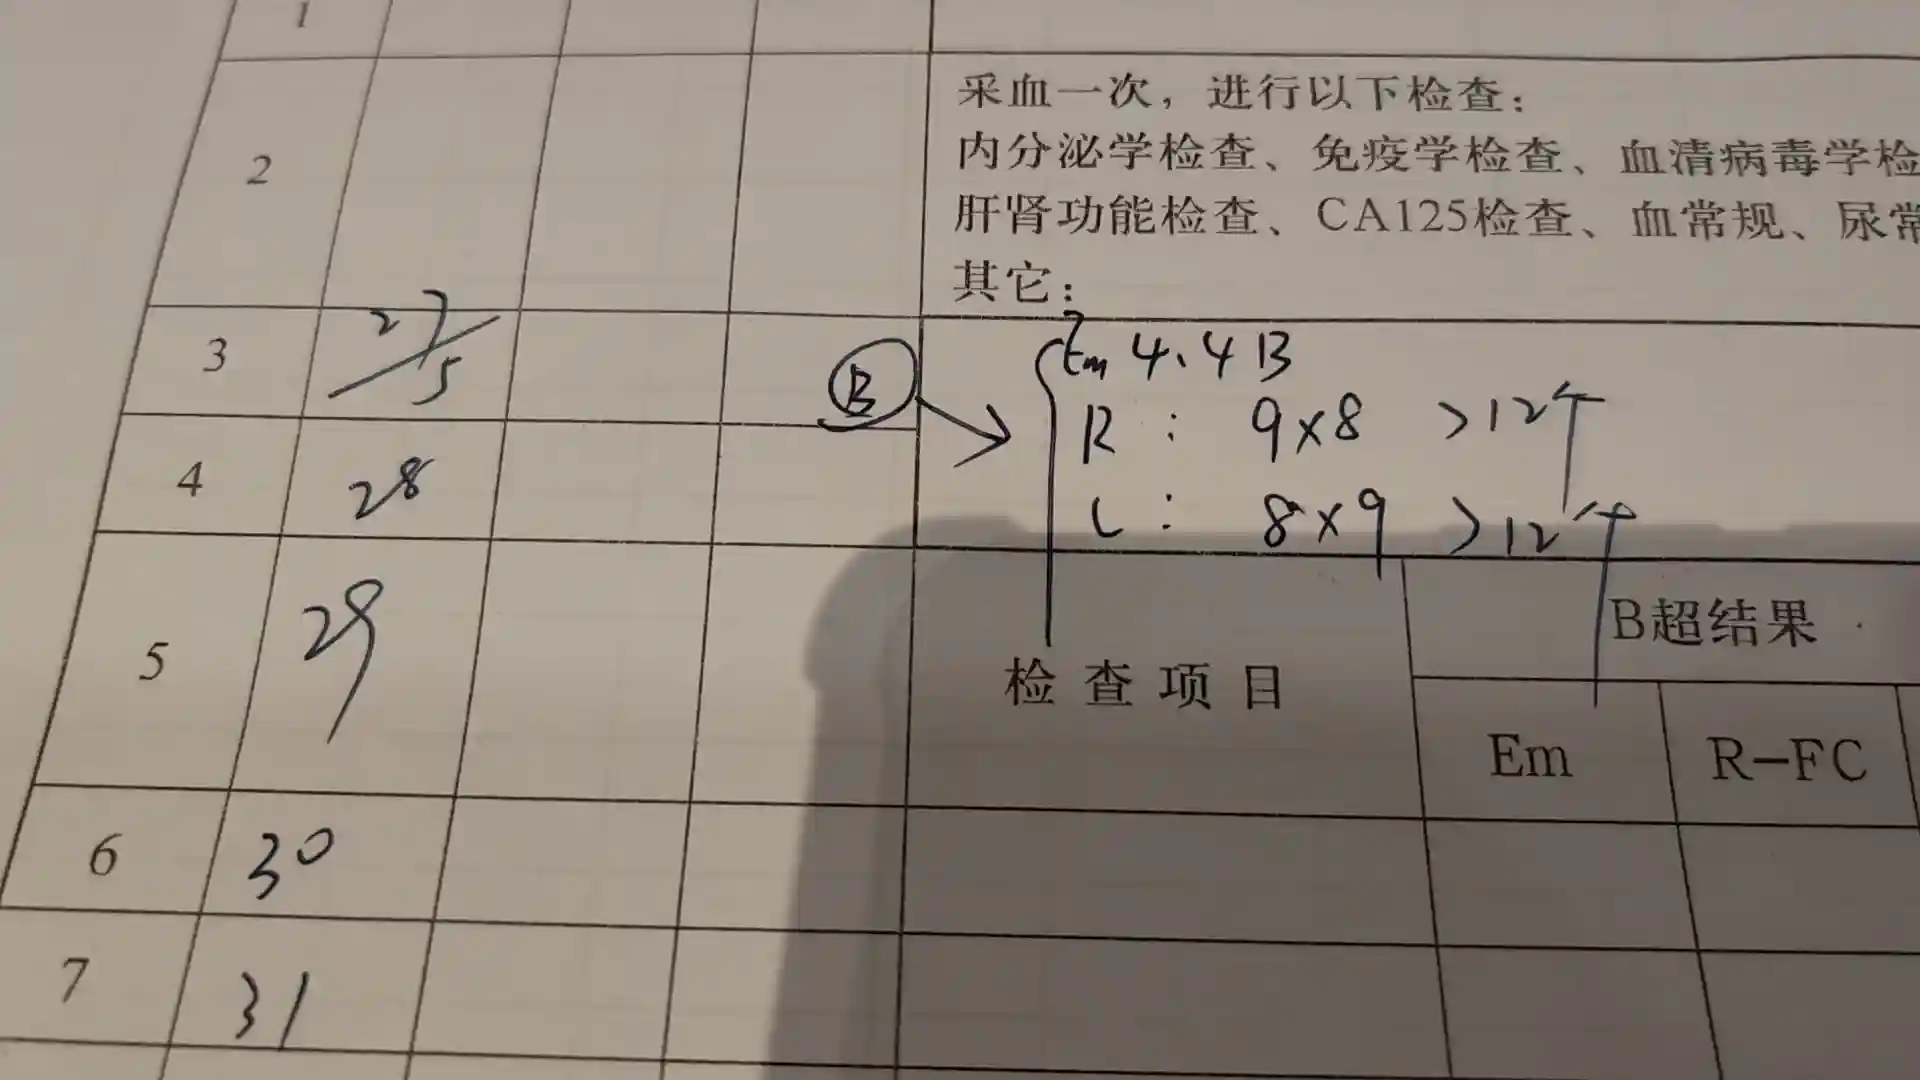 1
2
采血一次，进行以下检查：
内分泌学检查、免疫学检查、血清病毒学检
肝肾功能检查、CA125检查、血常规、尿常
其它：
3 27/5 B Em 4.4 B
R： 9×8 >12个
4 28
L： 8×9 >12个
5 29
检查项目 B超结果
Em R-FC
6 30
7 31